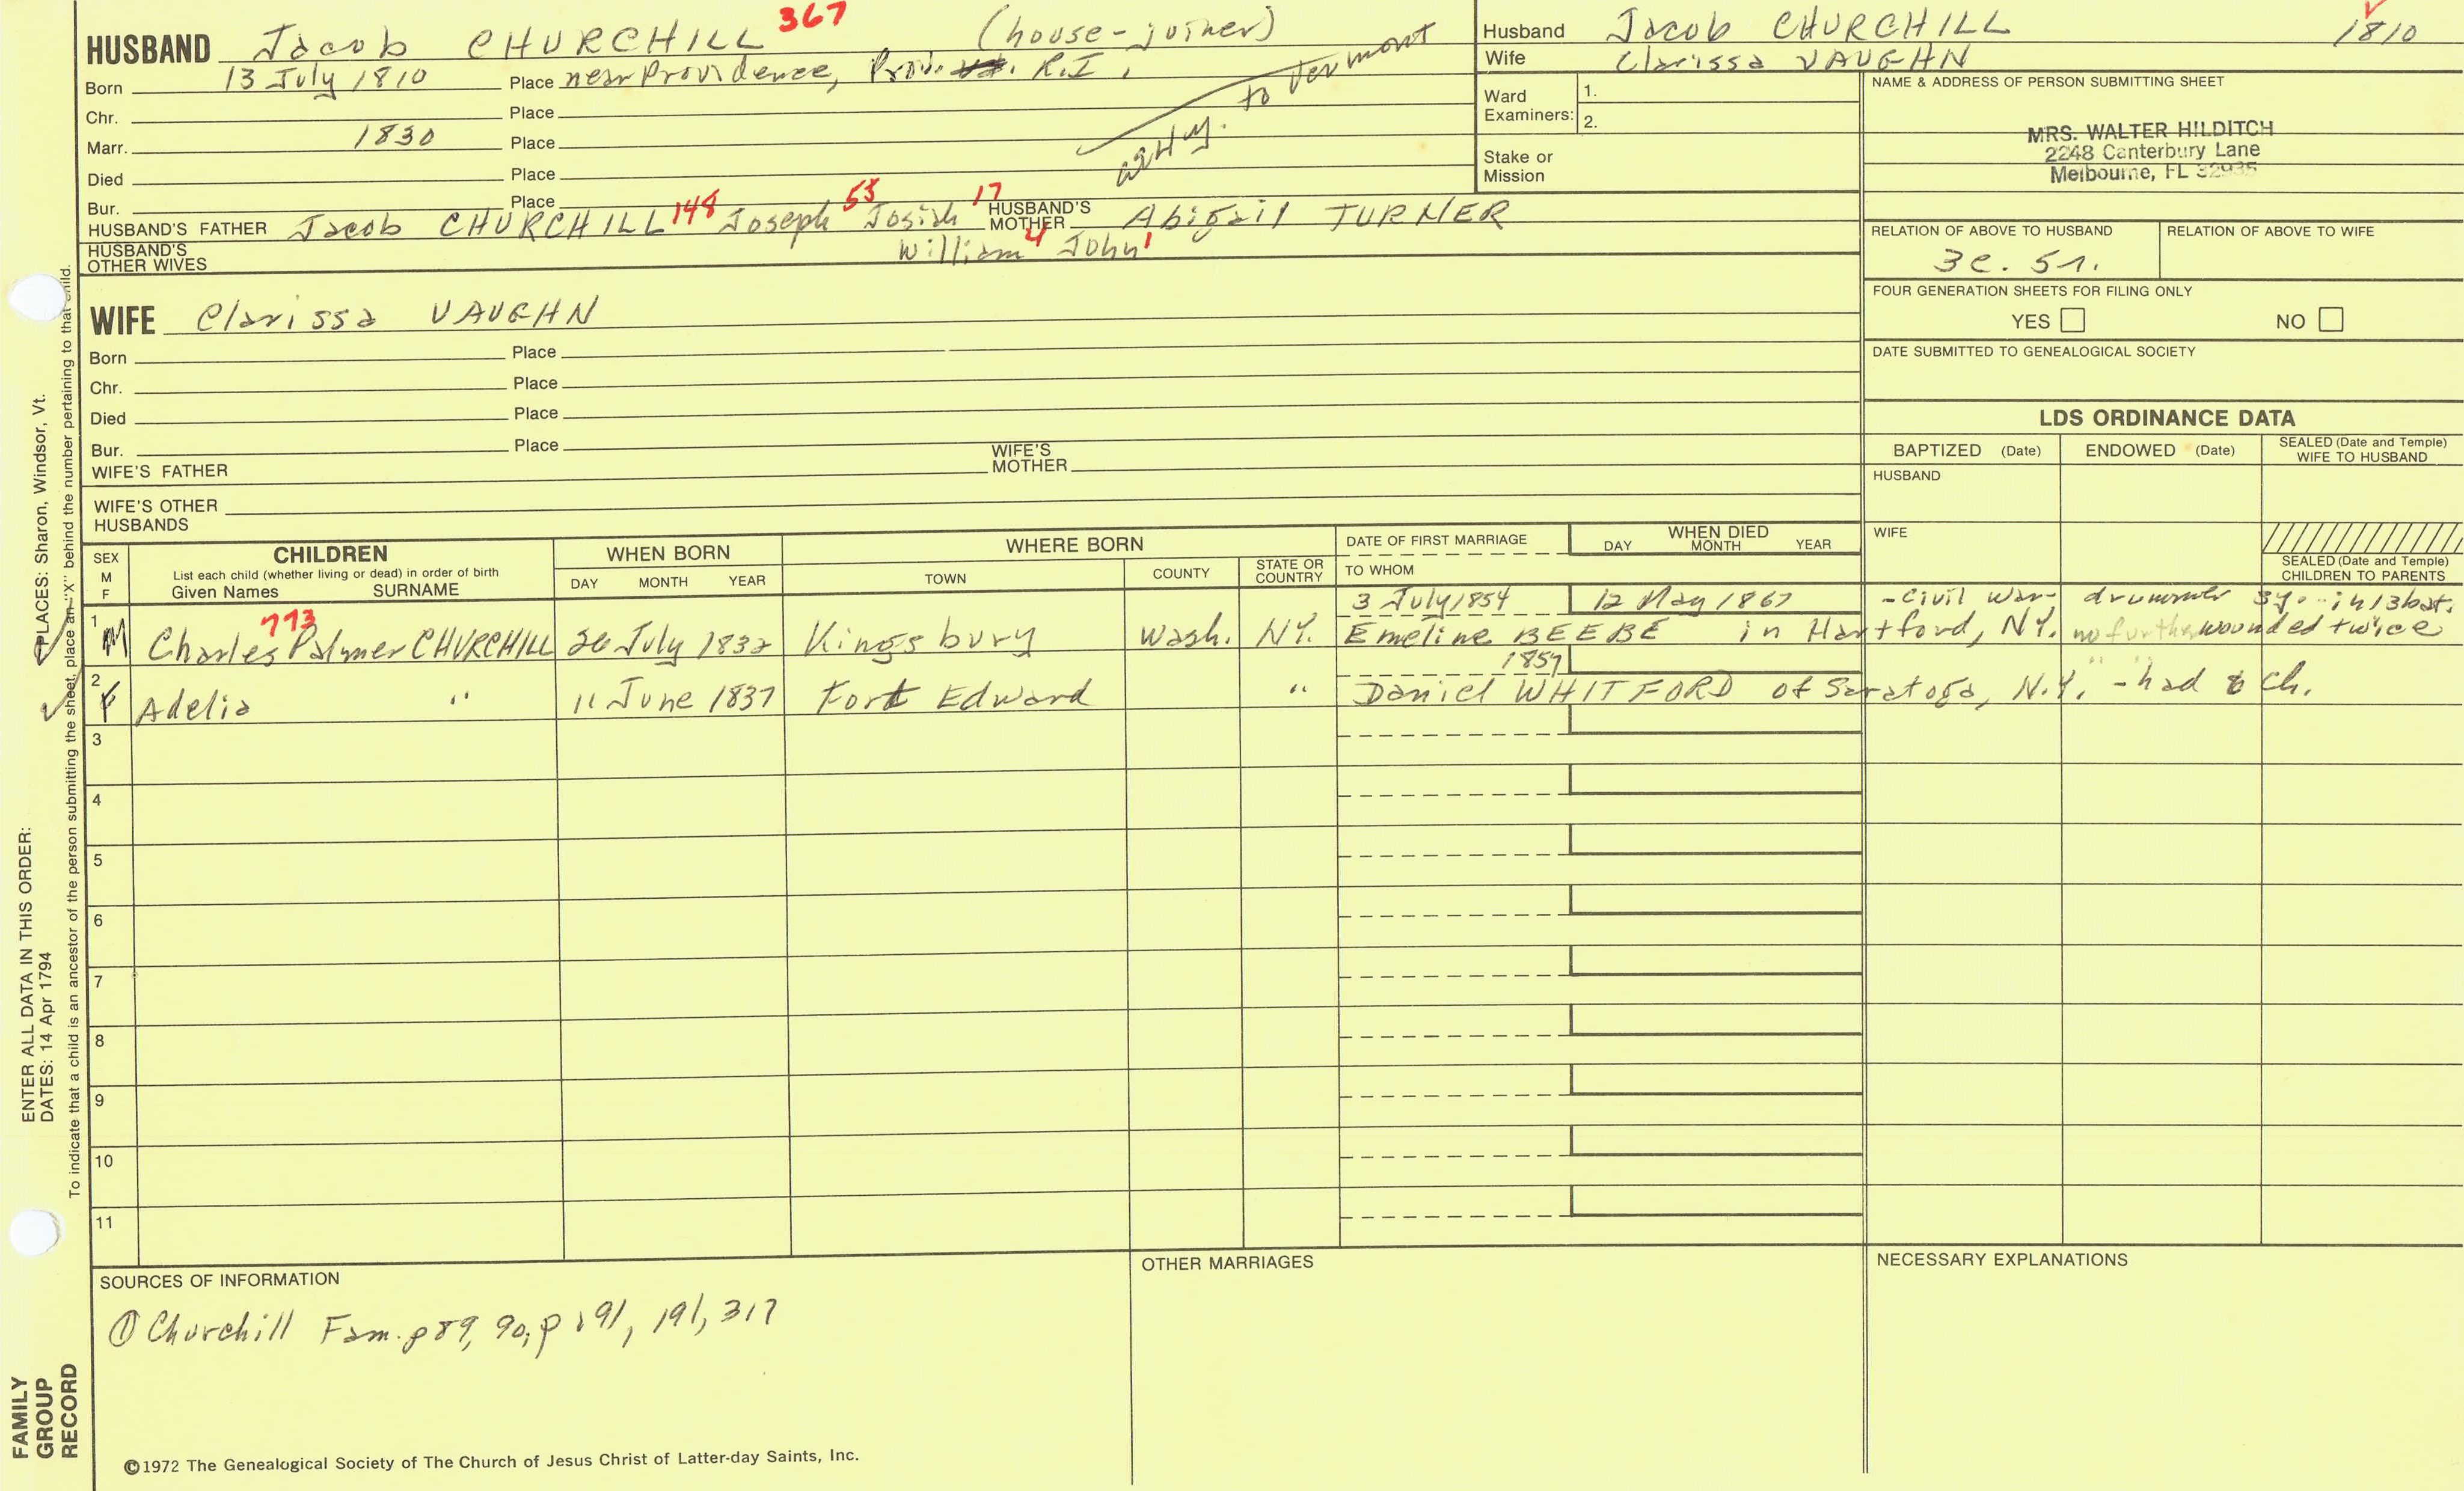 HUSBAND Jacob CHURCHILL 367 (house-joiner)
Born 13 July 1810 Place near Providence, Prov. R.I.
to Vermont
Chr. Place
Marr. 1830 Place
Died Place
Bur. Place
HUSBAND'S FATHER Jacob CHURCHILL 148 Joseph 55 Josiah 17 HUSBAND'S MOTHER Abigail TURNER
William 4 John 1
HUSBAND'S OTHER WIVES
Husband Jacob CHURCHILL 1810
Wife Clarissa VAUGHN
Ward Examiners: 1.
2.
Stake or Mission
NAME & ADDRESS OF PERSON SUBMITTING SHEET
MRS. WALTER HILDITCH
2248 Canterbury Lane
Melbourne, FL 32935
RELATION OF ABOVE TO HUSBAND RELATION OF ABOVE TO WIFE
3c. 5r.
FOUR GENERATION SHEETS FOR FILING ONLY
YES NO
DATE SUBMITTED TO GENEALOGICAL SOCIETY
WIFE Clarissa VAUGHN
Born Place
Chr. Place
Died Place
Bur. Place
WIFE'S FATHER WIFE'S MOTHER
WIFE'S OTHER HUSBANDS
LDS ORDINANCE DATA
BAPTIZED (Date) ENDOWED (Date) SEALED (Date and Temple) WIFE TO HUSBAND
HUSBAND
WIFE
SEALED (Date and Temple) CHILDREN TO PARENTS
SEX M F
CHILDREN
List each child (whether living or dead) in order of birth
Given Names SURNAME
WHEN BORN
DAY MONTH YEAR
WHERE BORN
TOWN COUNTY STATE OR COUNTRY
DATE OF FIRST MARRIAGE
TO WHOM
WHEN DIED
DAY MONTH YEAR
3 July 1854 12 May 1867 - Civil War drummer 3 y. in 13 bat.
1 M 773 Charles Palmer CHURCHILL 26 July 1832 Kingsbury Wash. NY. Emeline BEEBE in Hartford, NY. no further wounded twice
1857
2 F Adelia " 11 June 1837 Fort Edward " Daniel WHITFORD of Saratoga, N.Y. - had 6 ch.
3
4
5
6
7
8
9
10
11
SOURCES OF INFORMATION
① Churchill Fam. p 89, 90, p 191, 191, 317
OTHER MARRIAGES
NECESSARY EXPLANATIONS
©1972 The Genealogical Society of The Church of Jesus Christ of Latter-day Saints, Inc.
FAMILY GROUP RECORD
ENTER ALL DATA IN THIS ORDER:
DATES: 14 Apr 1794
PLACES: Sharon, Windsor, Vt.
To indicate that a child is an ancestor of the person submitting the sheet, place an "X" behind the number pertaining to that child.